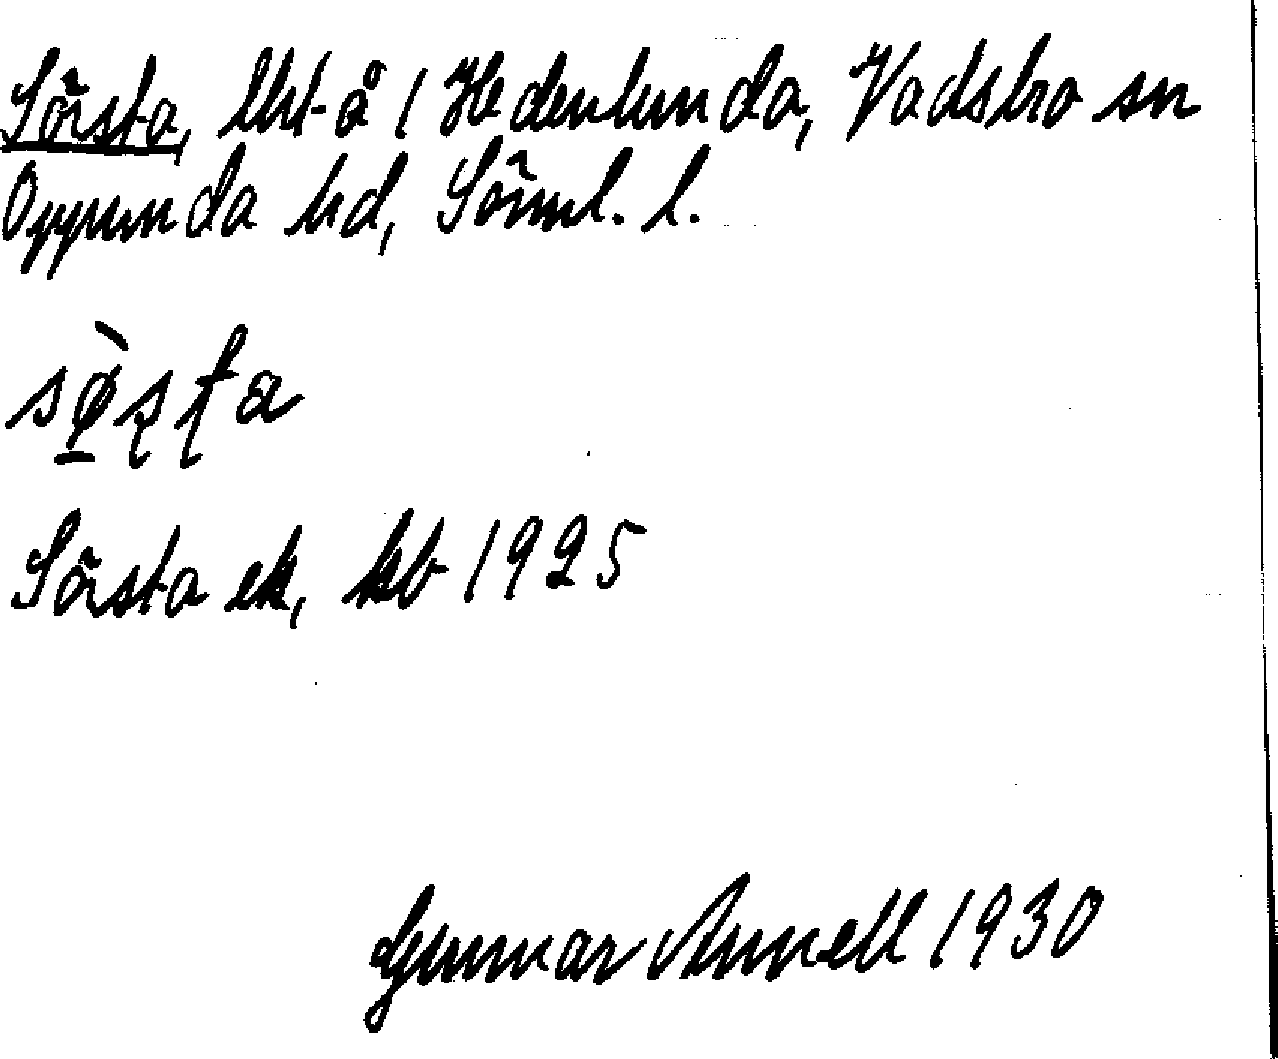 Sörsta, lht å 1 Hedenlunda, Vadsbro sn
Oppunda hd, Söml. l.
Sörsta ek, kb 1925
Gunnar Annell 1930